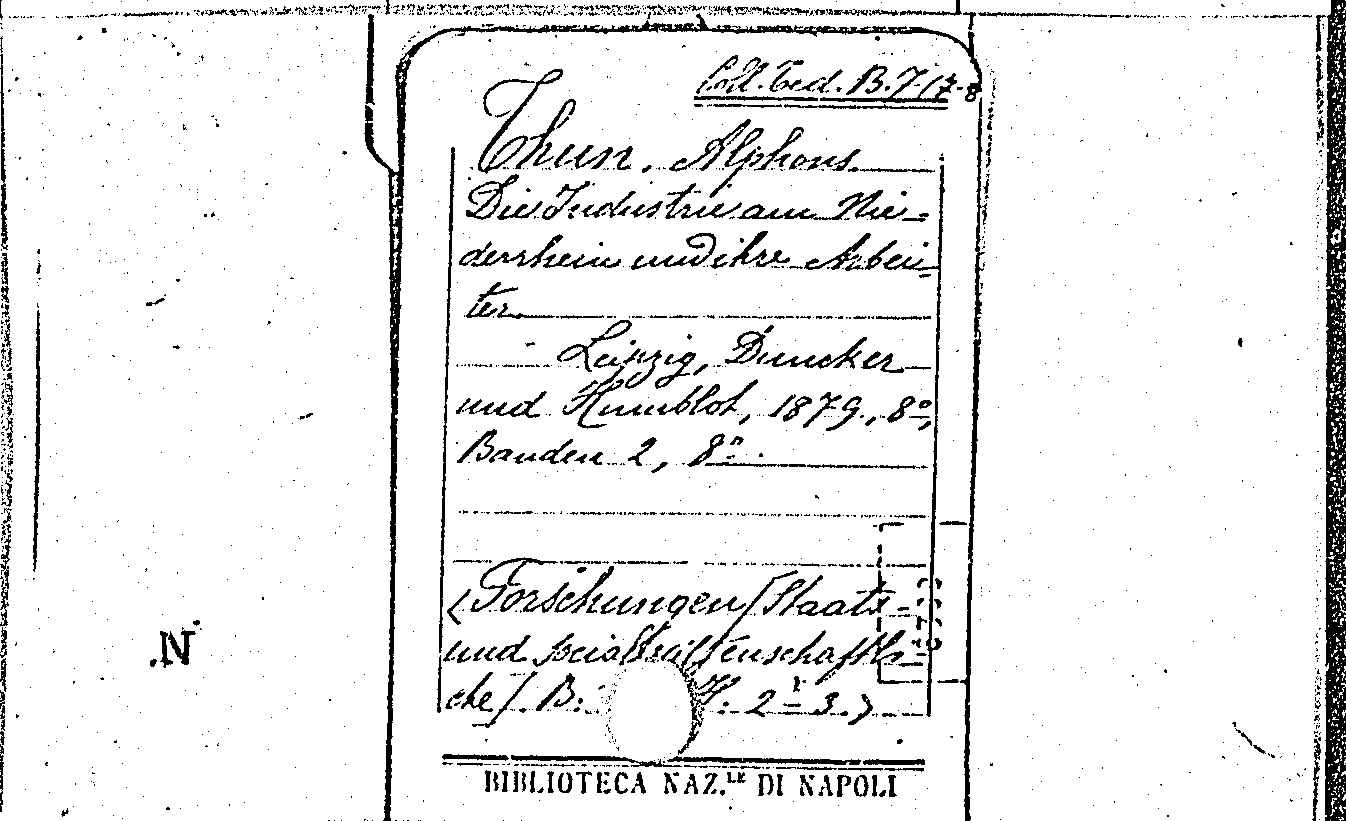 Coll. Ted. B. 7-17-8
Thun, Alphons.
Die Industrie am Nie=
derrhein und ihre Arbei=
ter.
Leipzig, Duncker
und Humblot, 1879., 8º,
Banden 2, 8º.
(Forschungen / Staats-
und socialwissenschaftli-
che /. B. H. 2-3.)
.N.
BIBLIOTECA NAZ.LE DI NAPOLI